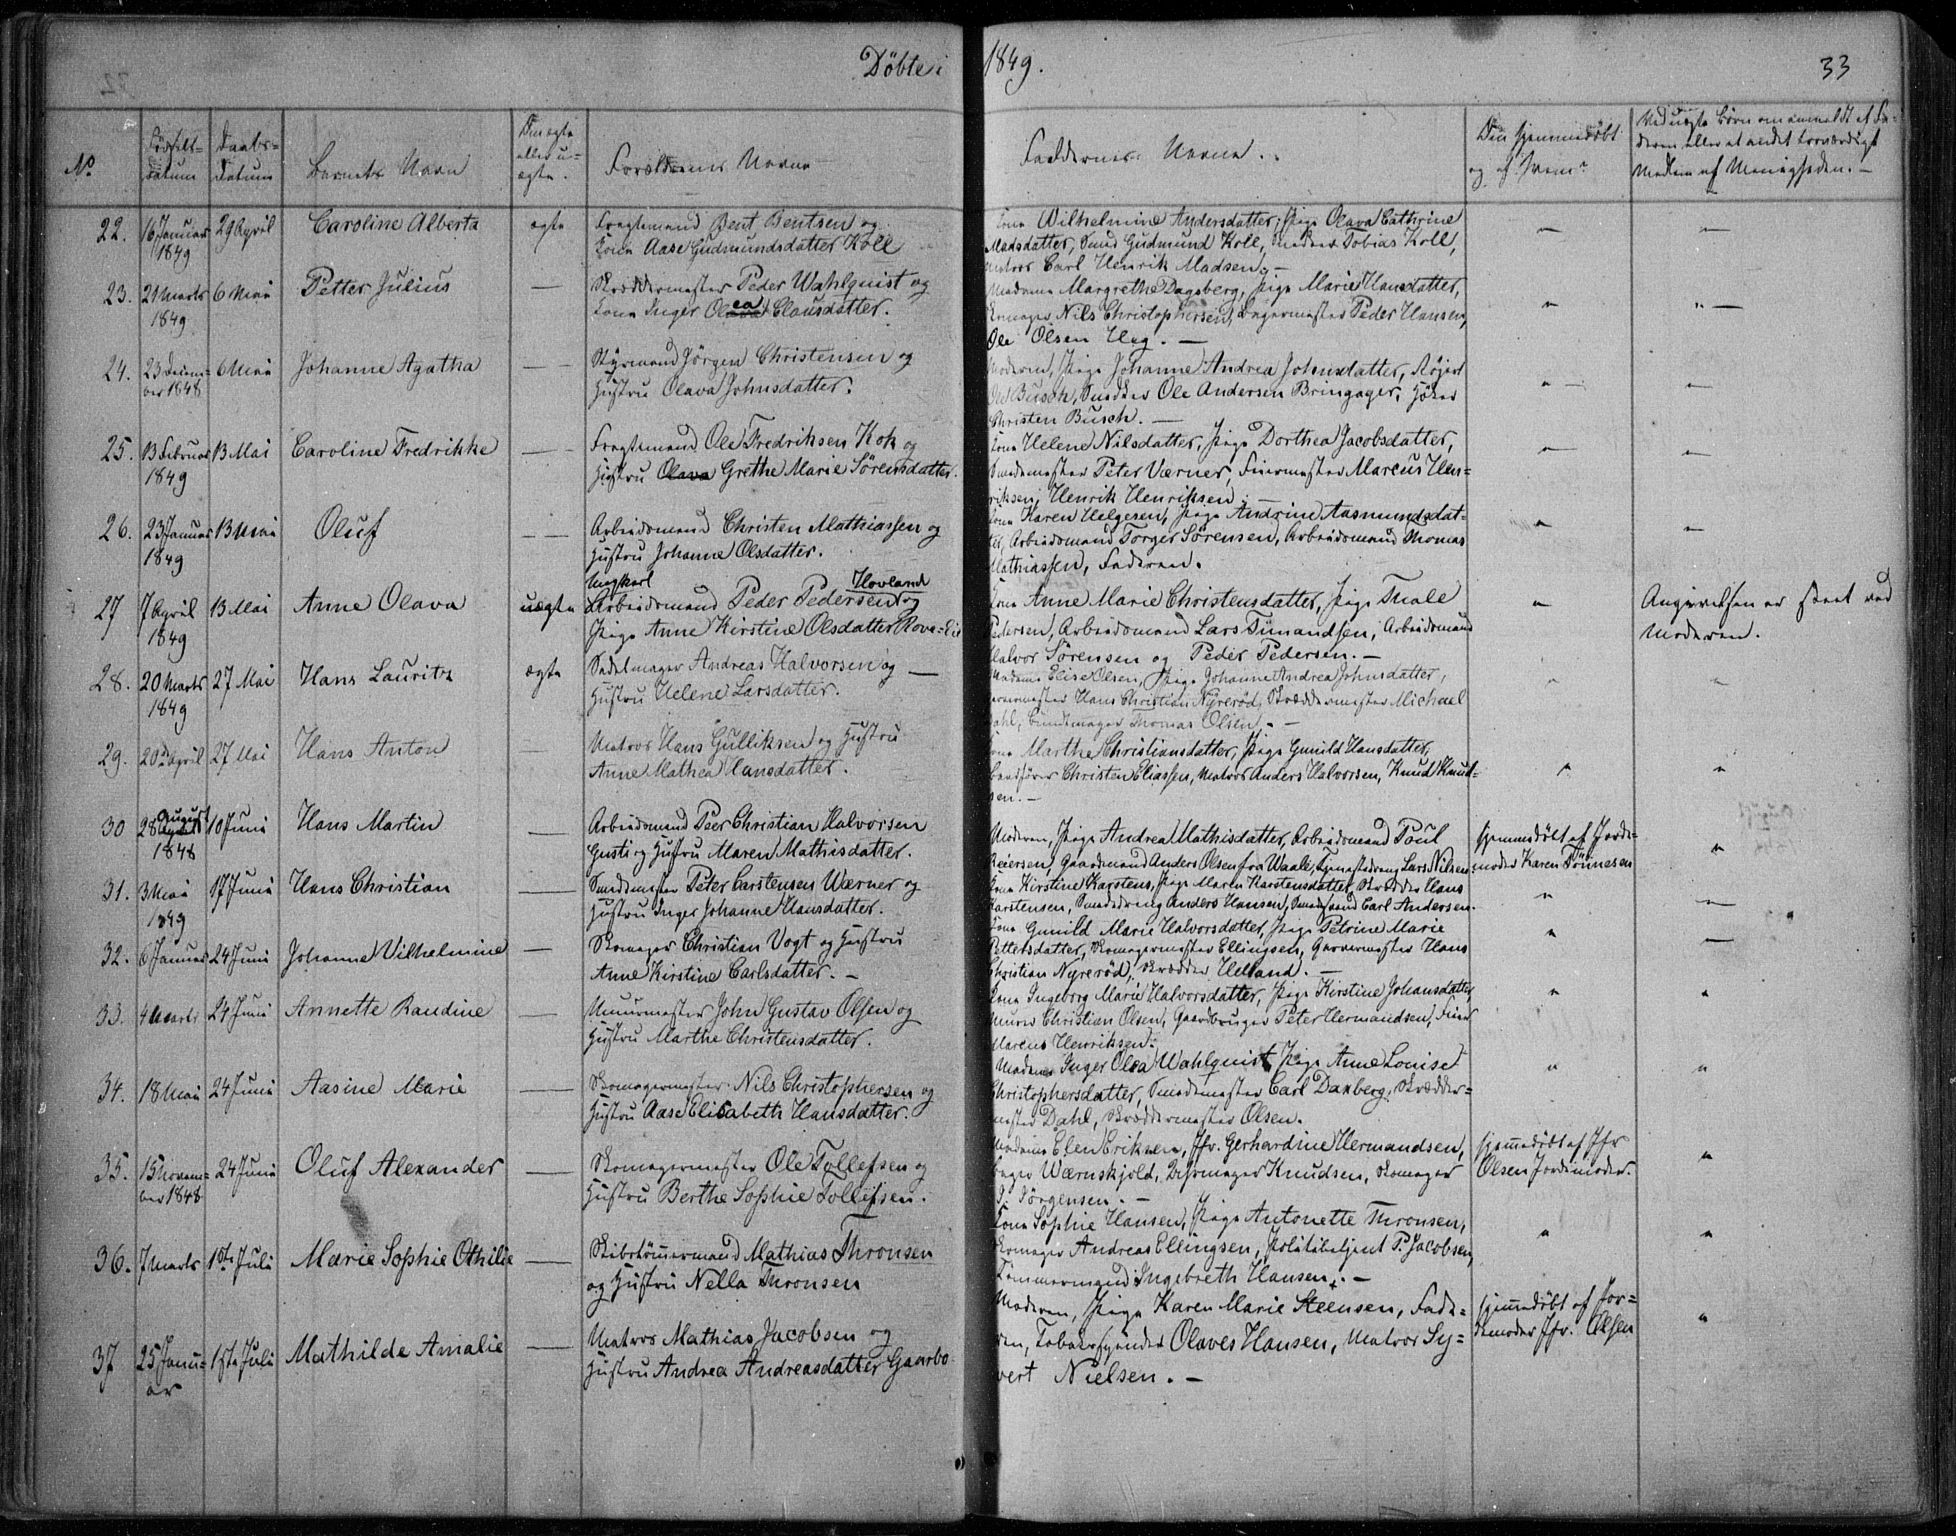 Döbte i 1849.
33
No
Fødsels-
datum
Daabs-
Datum
Barnets Navn
Om ægte
eller u-
ægte.
Forældrenes Navne
Faddernes Navne.
Om hjemmedøbt
og af hvem?
Ved uægte Børn om anmeldt af Fa-
deren eller et andet troværdigt
Medlem af Menigheden. —
22.
16 Januar
1849
29 April
Caroline Alberta
ægte
Fragtemand Bent Bentsen og
Kone Aase Gudmundsdatter Koll
Kone Wilhelmine Andersdatter, Pige Olava Cathrine
Madsdatter, Smed Gudmund Koll, Tobias Koll,
Matros Carl Henrik Madsen. —
23.
21 Marts
1849
6 Mai
Petter Julius
—
Skræddermester Peder Wahlquist og
Kone Inger Olea Clausdatter.
Madame Margrethe Dagsberg, Pige Marie Hansdatter,
Skomager Nils Christophersen, Bagermester Peder Hansen,
Ole Olsen Heg. —
24.
23 Decem-
ber 1848
6 Mai
Johanne Agatha
—
Styrmand Jörgen Christensen og
Hustru Olava Johnsdatter.
Moderen, Pige Johanne Andrea Johnsdatter,
Ole Busch, Snedker Ole Andersen Bringager,
Christen Busch. —
25.
13 Februar
1849
13 Mai
Caroline Fredrikke
—
Fragtemand Ole Fredriksen Kok og
Hustru Olava Grethe Marie Sörensdatter.
Kone Helene Nilsdatter, Pige Dorthea Jacobsdatter,
Smedmester Peter Værner, Marcus Hen-
riksen, Henrik Henriksen
26.
23 Januar
1849
13 Mai
Oluf
—
Arbeidsmand Christen Mathiassen og
Hustru Johanne Olsdatter.
Kone Karen Helgesen, Pige Andrine Aasmundsdat-
ter, Arbeidsmand Torger Sörensen, Arbeidsmand Thomas
Mathiassen, Faderen.
27
7 April
1849
13 Mai
Anne Olava
uægte
Ungkarl Hovland
Arbeidsmand Peder Pedersen og
Pige Anne Kirstine Olsdatter
Kone Anne Marie Christensdatter, Pige Thale
Pedersen, Arbeidsmand Lars Simandsen, Arbeidsmand
Halvor Sörensen og Peder Pedersen. —
Angivelsen er skeet ved
Moderen.
28.
20 Marts
1849
27 Mai
Hans Laurits
ægte
Sadelmager Andreas Halvorsen og —
Hustru Helene Larsdatter.
Madame Elise Olsen, Pige Johanne Andrea Johnsdatter,
Garvermester Hans Christian Nyrerød, Skræddermester Michael
Dahl, Buntmager Thomas Olsen. —
29.
20de April
27 Mai
Hans Anton
—
Matros Hans Gulliksen og Hustru
Anne Mathea Hansdatter.
Kone Marthe Christiansdatter, Pige Gunild Hansdatter,
Christen Eliassen, Matros Anders Halvorsen, Knud Knud-
sen. —
30
28 August
1848
10 Juni
Hans Martin
—
Arbeidsmand Peer Christian Halvorsen
og Hustru Maren Mathisdatter.
Moderen, Pige Andrea Mathisdatter, Arbeidsmand Poul
Reiersen, Gaardmand Anders Olsen fra Waale, Tjenestedreng Lars Nilsen
hjemmedöbt af Jorde-
moder Karen Tönnesen
31.
3 Mai
1849
17 Juni
Hans Christian
—
Smedmester Peter Carstensen Wærner og
Hustru Inger Johanne Hansdatter.
Kone Kirstine Karstens, Pige Maren Karstensdatter, Skrædder Hans
Karstensen, Smededreng Anders Hansen, Carl Andersen.
32.
6 Januar
24 Juni
Johanne Vilhelmine
—
Skomager Christian Vogt og Hustru
Anne Kirstine Carlsdatter. —
Kone Gunild Marie Halvorsdatter, Pige Petrine Marie
Pettersdatter, Skomagermester Ellingsen, Garvermester Hans
Christian Nyrerød, Skrædder Helland. —
33.
4 Marts
24 Juni
Annette Randine
—
Muurmester John Gustav Olsen og
Hustru Marthe Christensdatter.
Kone Ingeborg Marie Halvorsdatter, Pige Kirstine Johansdatter,
Murer Christian Olsen, Gaardbruger Peter Hermandsen,
Marcus Henriksen.
34.
18 Mai
24 Juni
Aasine Marie
—
Skomagermester Nils Christophersen og
Hustru Aase Elisabeth Hansdatter.
Madame Inger Olea Wahlquist, Pige Anne Louise
Christophersdatter, Smedmester Carl Daxberg, Skrædder-
mester Dahl, Skræddermester Olsen.
35.
15 Novem-
ber 1848
24 Juni
Oluf Alexander
—
Skomagermester Ole Tollefsen og
Hustru Berthe Sophie Tollefsen.
Madame Elen Eriksen, Jfr. Gerhardine Hermandsen,
Bager Wærnskjold, Knudsen, Skomager
Jörgensen. —
hjemmedöbt af Jfr
Olsen Jordemoder.
36.
7 Marts
1ste Juli
Marie Sophie Othilie
—
Skibstömmermand Mathias Thronsen
og Hustru Nella Thronsen
Kone Sophie Hansen, Pige Antonette Thronsen,
Skomager Andreas Ellingsen, Politibetjent P. Jacobsen,
Tömmermand Ingebreth Hansen. —
37
25 Janu-
ar
1ste Juli
Mathilde Amalie
—
Matros Mathias Jacobsen og
Hustru Andrea Andreasdatter Gaarbo
Moderen, Pige Karen Marie Steensen, Fade-
ren, Tobakspinder Olaves Hansen, Matros Sy-
vert Nielsen. —
hjemmedöbt af Jor-
demoder Jfr. Olsen